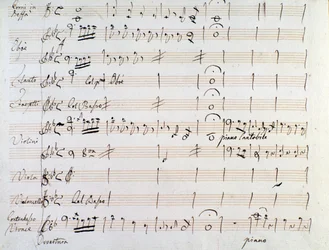 Corni in
Oboe
Flauto
Col pmo Oboe
Fagotti
Col Basso
Violini
piano Cantabile
Viola
Violoncello
Col Basso
Contrabasso
Overtura
piano